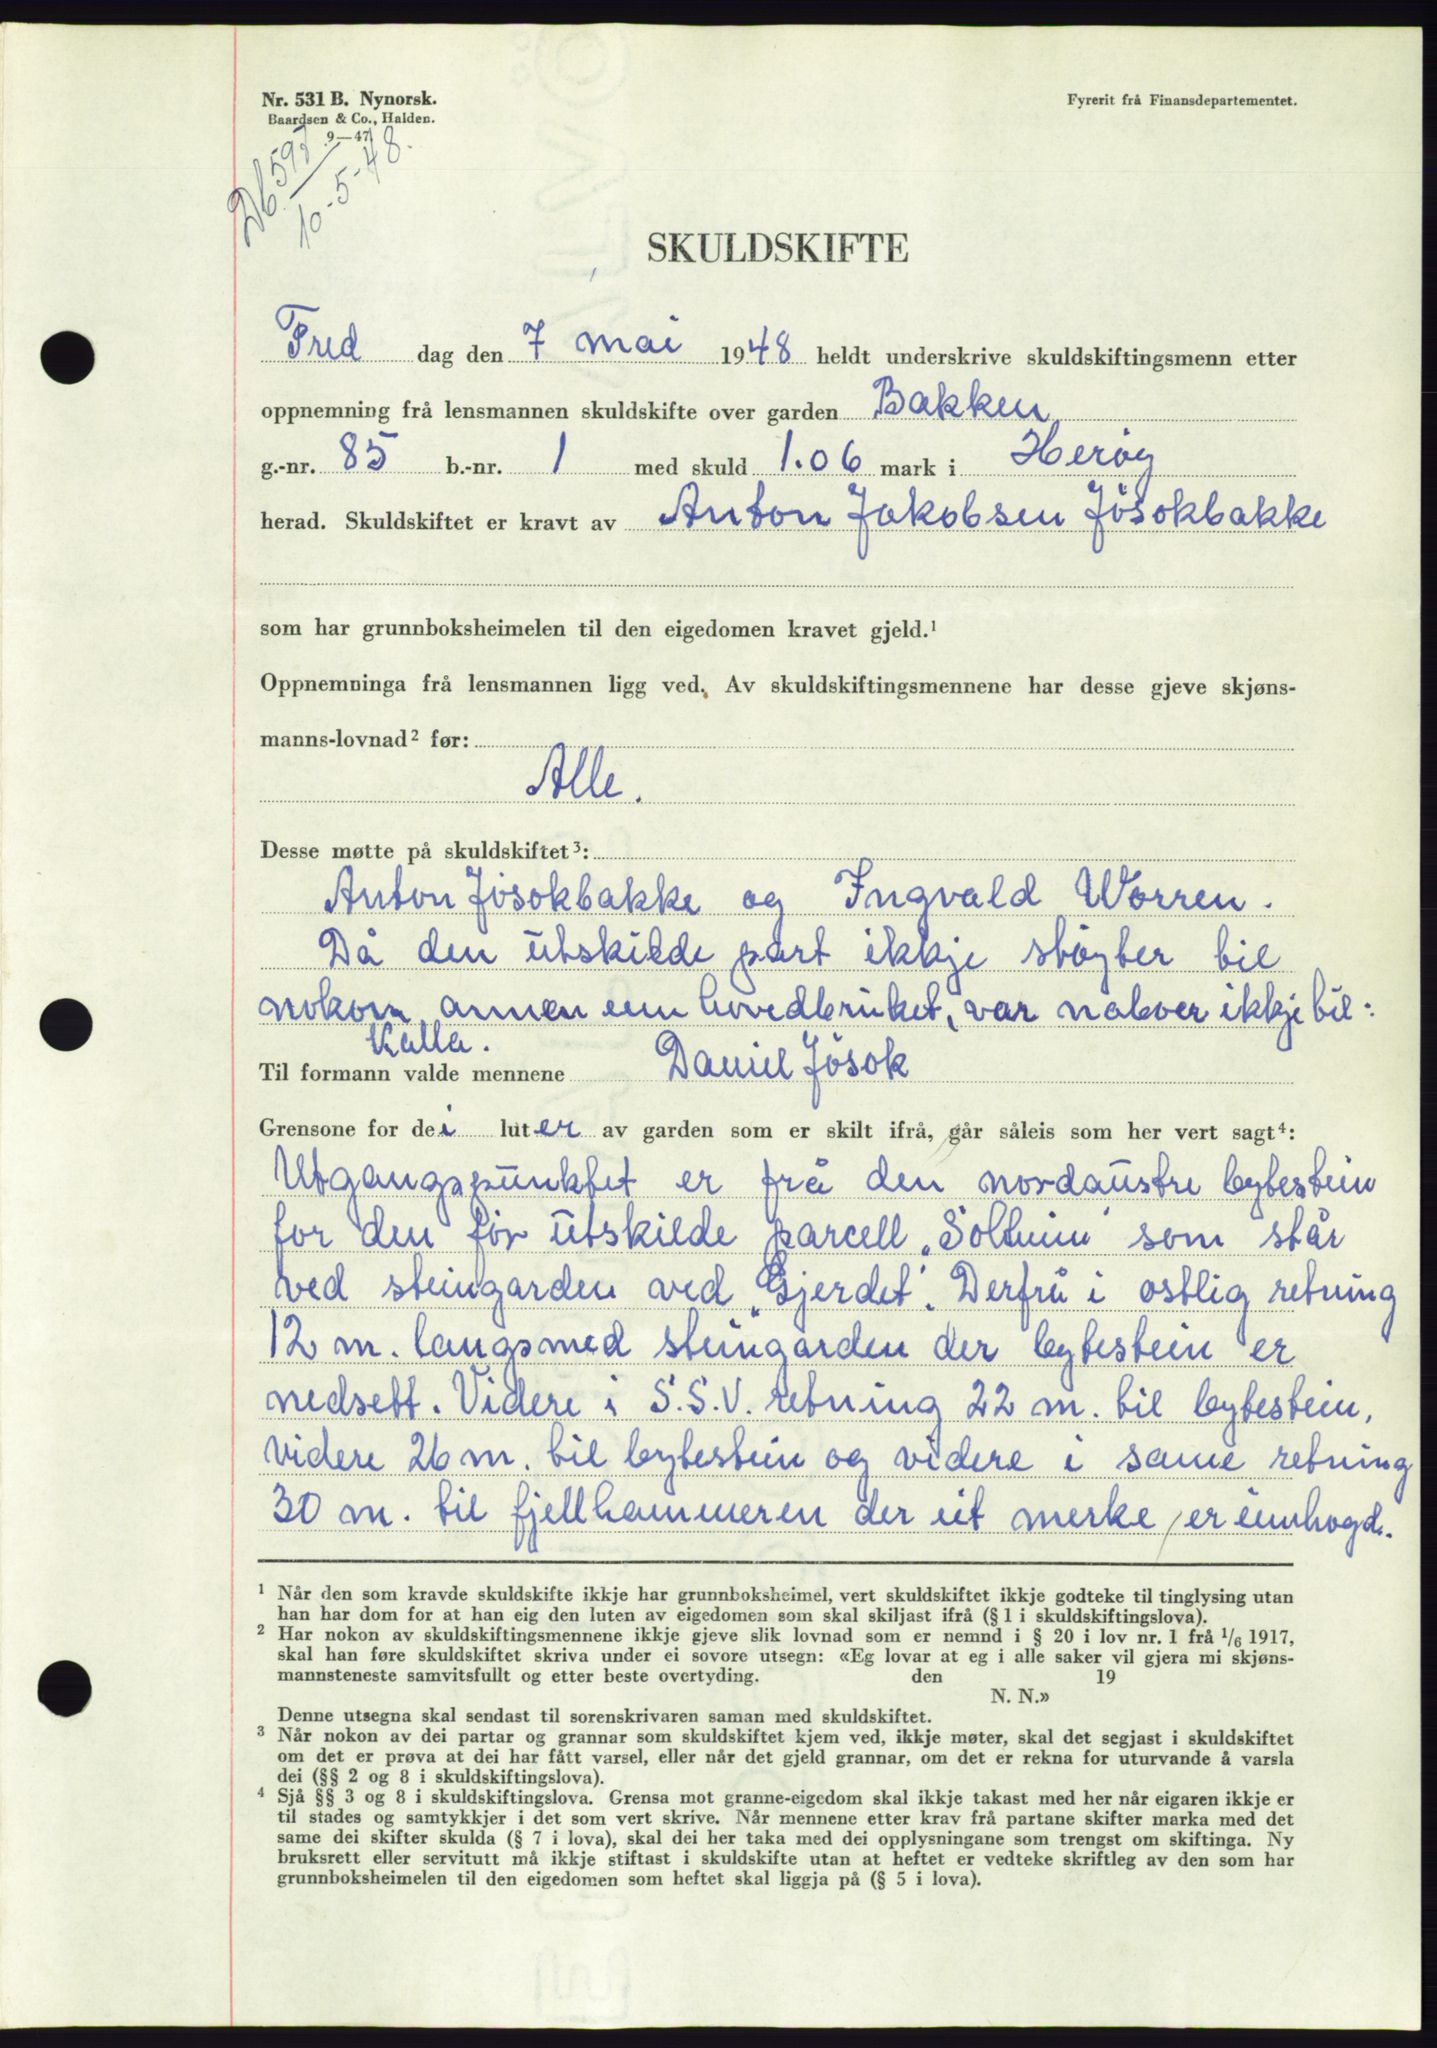 Nr. 531 B. Nynorsk.
Baardsen & Co., Halden.
9—47
Fyrerit frå Finansdepartementet.
Db 597
10-5-48.
SKULDSKIFTE
Fred dag den 7 mai 1948 heldt underskrive skuldskiftingsmenn etter
oppnemning frå lensmannen skuldskifte over garden Bakken
g.-nr. 85 b.-nr. 1 med skuld 1.06 mark i Herøy
herad. Skuldskiftet er kravt av Anton Jakobsen Jösokbakke
som har grunnboksheimelen til den eigedomen kravet gjeld.¹
Oppnemninga frå lensmannen ligg ved. Av skuldskiftingsmennene har desse gjeve skjøns-
manns-lovnad² før:
Alle.
Desse møtte på skuldskiftet³:
Anton Jösokbakke og Ingvald Worren.
Då den utskilde part ikkje stöyter til
nokon annen enn hovedbruket, var naboer ikkje til:
kalla.
Til formann valde mennene Daniel Jösok
Grensone for dei luter av garden som er skilt ifrå, går såleis som her vert sagt⁴:
Utgangspunktet er frå den nordaustre bytestein
for den för utskilde parcell „Solheim" som står
ved steingarden ved „Gjerdet". Derfrå i ostlig retning
12 m. langsmed steingarden der bytestein er
nedsett. Videre i S.S.V. retning 22 m. til bytestein,
videre 26 m. til bytestein og videre i same retning
30 m. til fjellhammeren der eit merke er innhogd.
¹ Når den som kravde skuldskifte ikkje har grunnboksheimel, vert skuldskiftet ikkje godteke til tinglysing utan
han har dom for at han eig den luten av eigedomen som skal skiljast ifrå (§ 1 i skuldskiftingslova).
² Har nokon av skuldskiftingsmennene ikkje gjeve slik lovnad som er nemnd i § 20 i lov nr. 1 frå 1/6 1917,
skal han føre skuldskiftet skriva under ei sovore utsegn: «Eg lovar at eg i alle saker vil gjera mi skjøns-
mannsteneste samvitsfullt og etter beste overtyding. den 19
N. N.»
Denne utsegna skal sendast til sorenskrivaren saman med skuldskiftet.
³ Når nokon av dei partar og grannar som skuldskiftet kjem ved, ikkje møter, skal det segjast i skuldskiftet
om det er prøva at dei har fått varsel, eller når det gjeld grannar, om det er rekna for uturvande å varsla
dei (§§ 2 og 8 i skuldskiftingslova).
⁴ Sjå §§ 3 og 8 i skuldskiftingslova. Grensa mot granne-eigedom skal ikkje takast med her når eigaren ikkje er
til stades og samtykkjer i det som vert skrive. Når mennene etter krav frå partane skifter marka med det
same dei skifter skulda (§ 7 i lova), skal dei her taka med dei opplysningane som trengst om skiftinga. Ny
bruksrett eller servitutt må ikkje stiftast i skuldskifte utan at heftet er vedteke skriftleg av den som har
grunnboksheimelen til den eigedomen som heftet skal liggja på (§ 5 i lova).